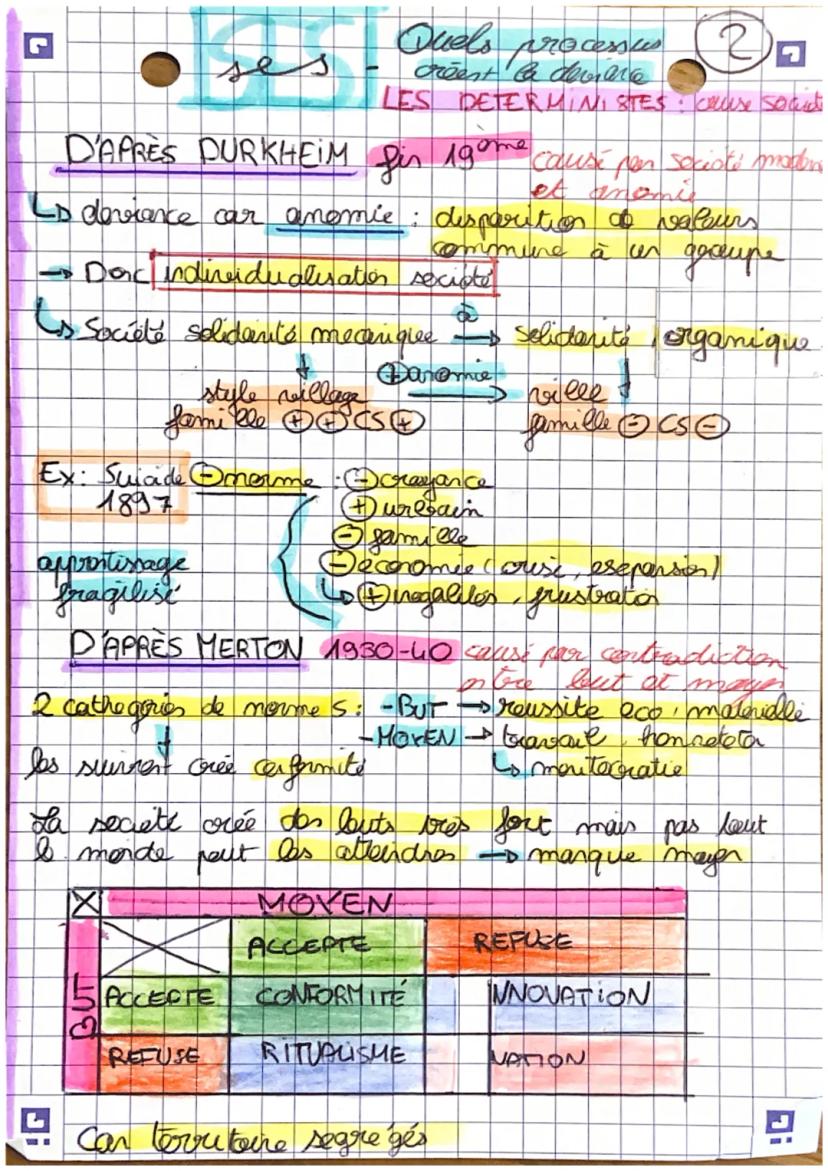 SES
ses - Quels processus
créent la déviance
2
LES DETERMINISTES : cause société
D'APRÈS DURKHEIM fin 19ème causé par société moderne
et anomie
↳ deviance car anomie : disparition de valeurs
commune à un groupe
→ Donc individualisation société
↳ Société solidarité mecanique à → solidarité organique
⊕ anomie
style village ville
famille ⊕ ⊕ CS ⊕ famille ⊖ CS ⊖
Ex : Suicide ⊖ norme : ⊖ croyance
1897 ⊕ urbain
⊖ famille
apprentissage ⊖ économie (crise, expansion)
fragilisé ↳ ⊕ inégalités, frustration
D'APRÈS MERTON 1930-40 causé par contradiction
entre but et moyen
2 cathegories de normes : - BUT → réussite eco, materielle
- MOYEN → travail, honneteté
les suivent crée conformité ↳ meritocratie
La société crée des buts très fort mais pas tout
le monde peut les atteindres → manque moyen
X MOYEN
ACCEPTE REFUSE
BUT ACCEPTE CONFORMITÉ INNOVATION
REFUSE RITUALISME NATION
Car territoire segregés